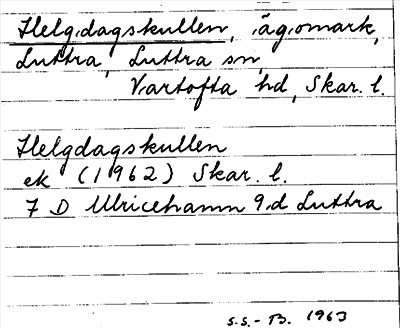 Helgdagskullen, ägomark,
Luttra, Luttra sn,
Vartofta hd, Skar. l.
Helgdagskullen
ek (1962) Skar. l.
7 D Ulricehamn 9d Luttra
S.S.-B. 1963